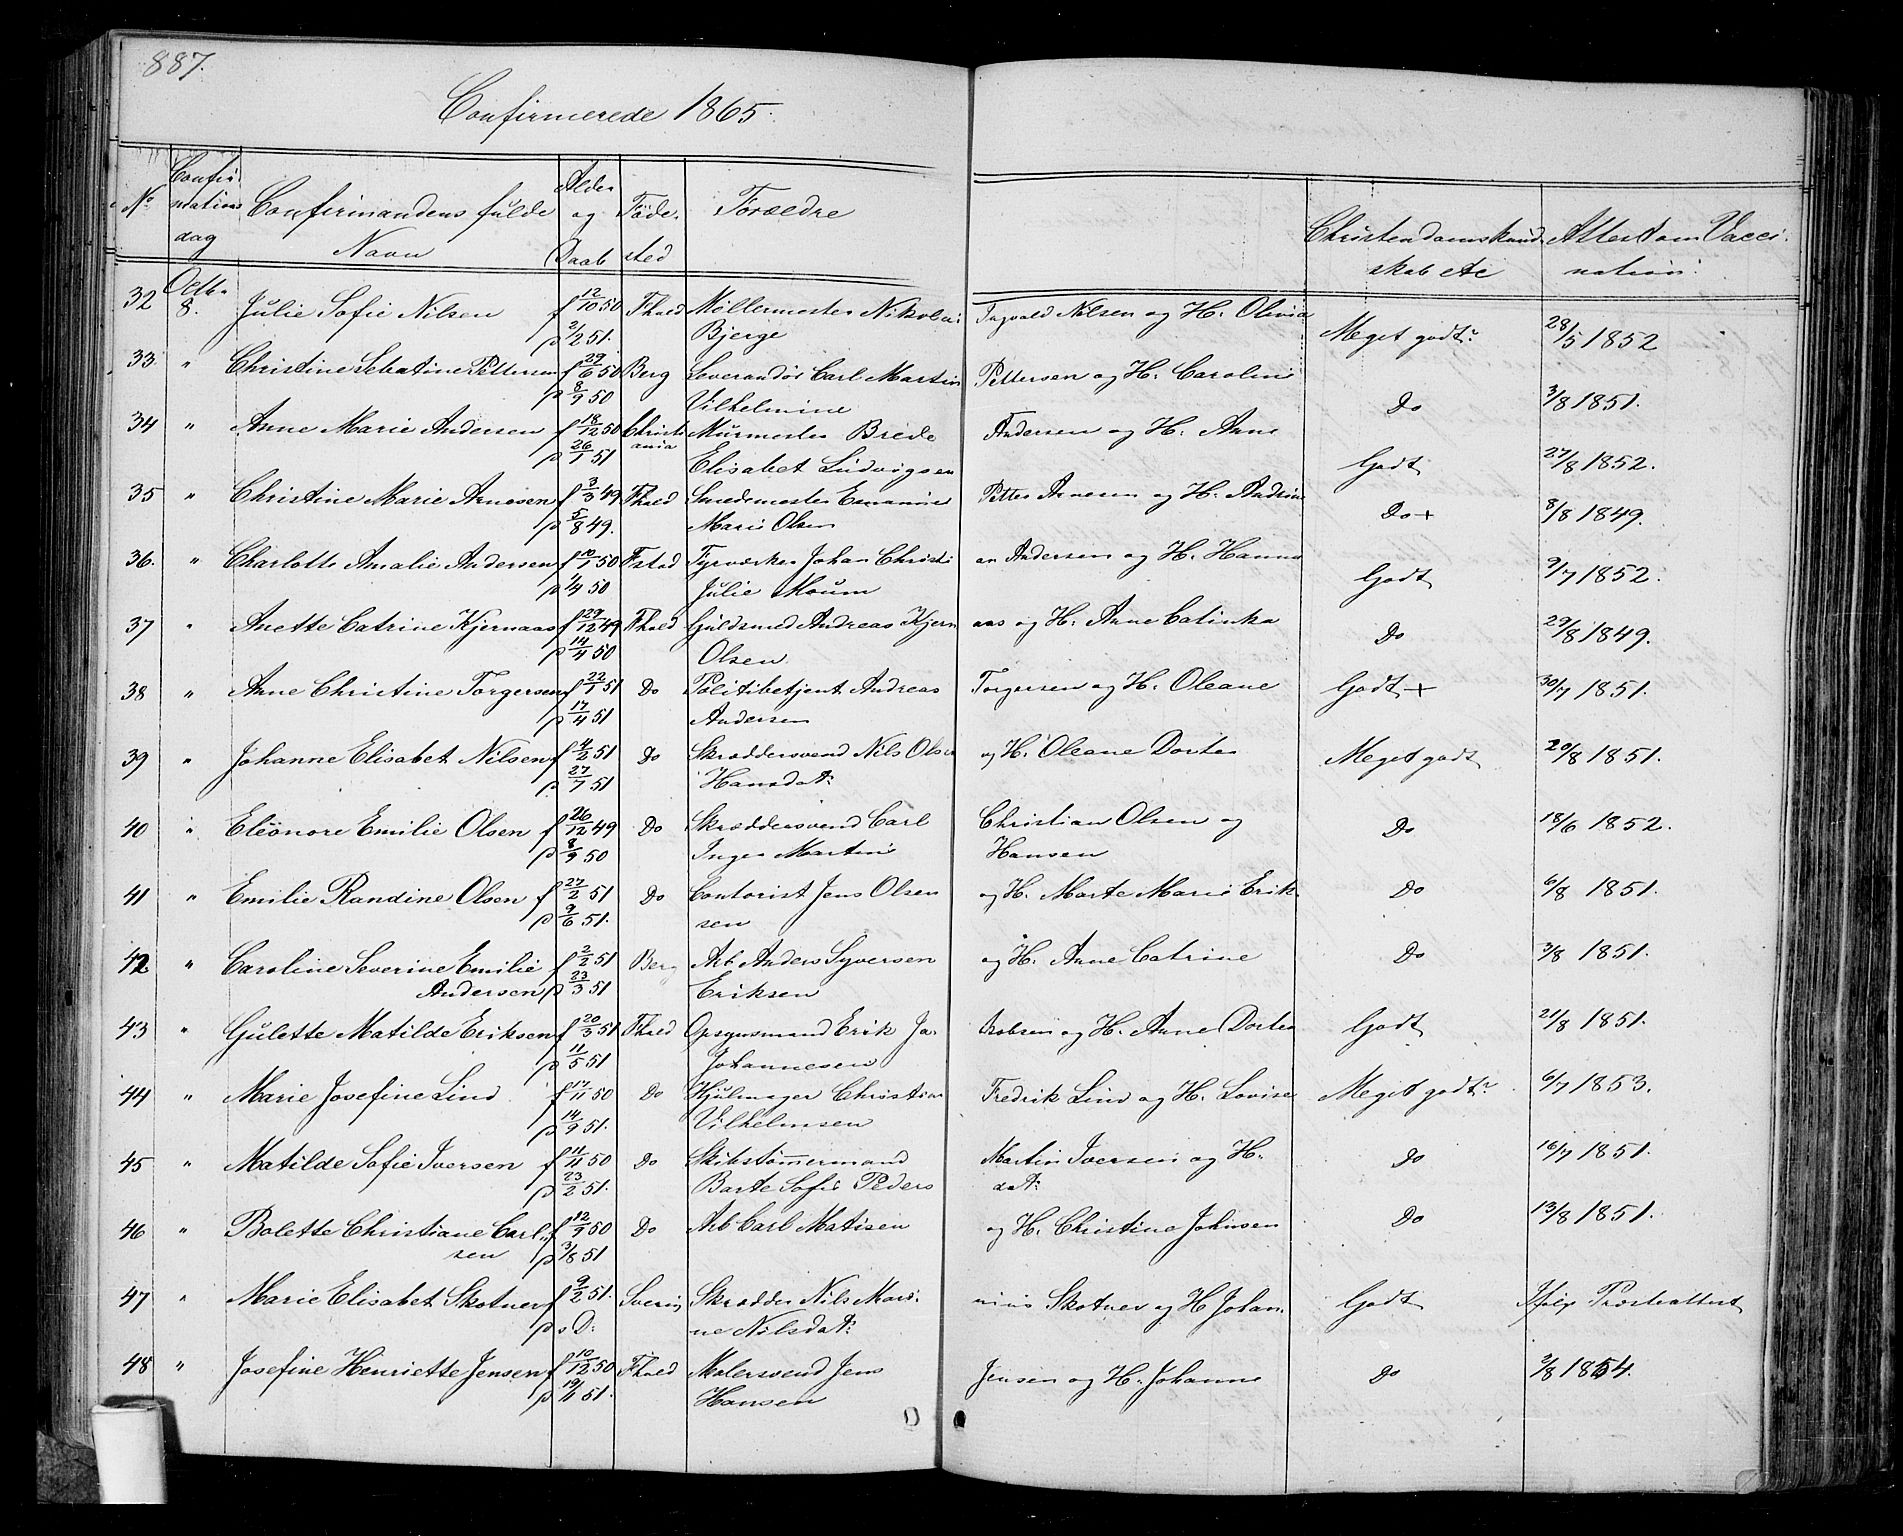 887.
Confirmerede 1865.
No. Confirmations dag Confirmandens fulde Navn Alder og Daab Fødested Forældre Christendomskundskab etc Attest om Vaccination
32 Octb. 8. Julie Sofie Nilsen f 12/10 50 Fhald Møllermester Nikolai Ingvald Nilsen og H. Olivia Meget godt 28/5 1852
p 2/2 51. Bjerge
33. " Christine Sebatine Pettersen f 29/6 50 Berg Leverandør Carl Martin Pettersen og H. Caroline Do 3/8 1851.
p 8/9 50 Vilhelmine
34 " Anne Marie Andersen f 18/12 50 Christiania Murmester Brede Andersen og H. Anne Godt 27/8 1852.
p 26/1 51 Elisabet Ludvigsen
35 " Christine Marie Arnesen f 3/3 49 Fhald Smedemester Petter Arnesen og H. Andrine Do + 8/8 1849.
p 5/8 49. Marie Olsen
36. " Charlotte Amalie Andersen f 10/1 50 Fstad Fyrværker Johan Christian Andersen og H. Hanna Godt 9/7 1852.
p 1/4 50 Julie Moum
37 " Anette Catrine Kjernaas f 29/12 49 Fhald Guldsmed Andreas Kjernaas og H. Anne Catinka Do 29/8 1849.
p 14/4 50 Olsen
38 " Anne Christine Torgersen f 22/1 51 Do Politibetjent Andreas Torgersen og H. Oleane Godt + 30/7 1851.
p 17/4 51 Andersen
39 " Johanne Elisabet Nilsen f 4/2 51 Do Skræddersvend Nils Olsen og H. Oleane Dortea Meget godt 20/8 1851.
p 27/7 51 Hansdat:
40 " Eleonore Emilie Olsen f 26/12 49 Do Skræddersvend Carl Christian Olsen og Do 18/6 1852.
p 8/9 50 Inger Martine Hansen
41 " Emilie Randine Olsen f 27/2 51 Do Contorist Jens Olsen og H. Marte Marie Erik- Do 6/8 1851.
p 9/6 51. sen
42 " Caroline Severine Emilie f 2/2 51 Berg Arb. Anders Syversen og H. Anne Catrine Do 3/8 1851.
Andersen p 23/3 51 Eriksen
43 " Gulette Matilde Eriksen f 20/3 51 Fhald Opsynsmand Erik Jakobsen og H. Anne Dortea Godt 21/8 1851.
p 11/5 51 Johannesen
44 " Marie Josefine Lind f 17/11 50 Do Hjulmager Christian Fredrik Lind og H. Lovise Meget godt 6/7 1853.
p 14/9 51. Vilhelmsen
45 " Matilde Sofie Iversen f 11/11 50 Do Skibstømermand Martin Iversen og H. Do 16/7 1851.
p 23/2 51. Barte Sofie Peders dat:
46 " Bolette Christiane Carl- f 12/9 50 Do Arb Carl Matisen og H. Christine Johnsen Do 13/8 1851.
sen p 3/8 51
47 " Marie Elisabet Skotner f 9/2 51. Sverig Skrædder Nils Marinius Skotner og H Johan- Godt Ifølge Præsteattest
p s D: ne Nilsdat:
48 " Josefine Henriette Jensen f 10/12 50 Fhald Malersvend Jens Jensen og H. Johanne Do 3/8 1854.
p 19/11 51. Hansen